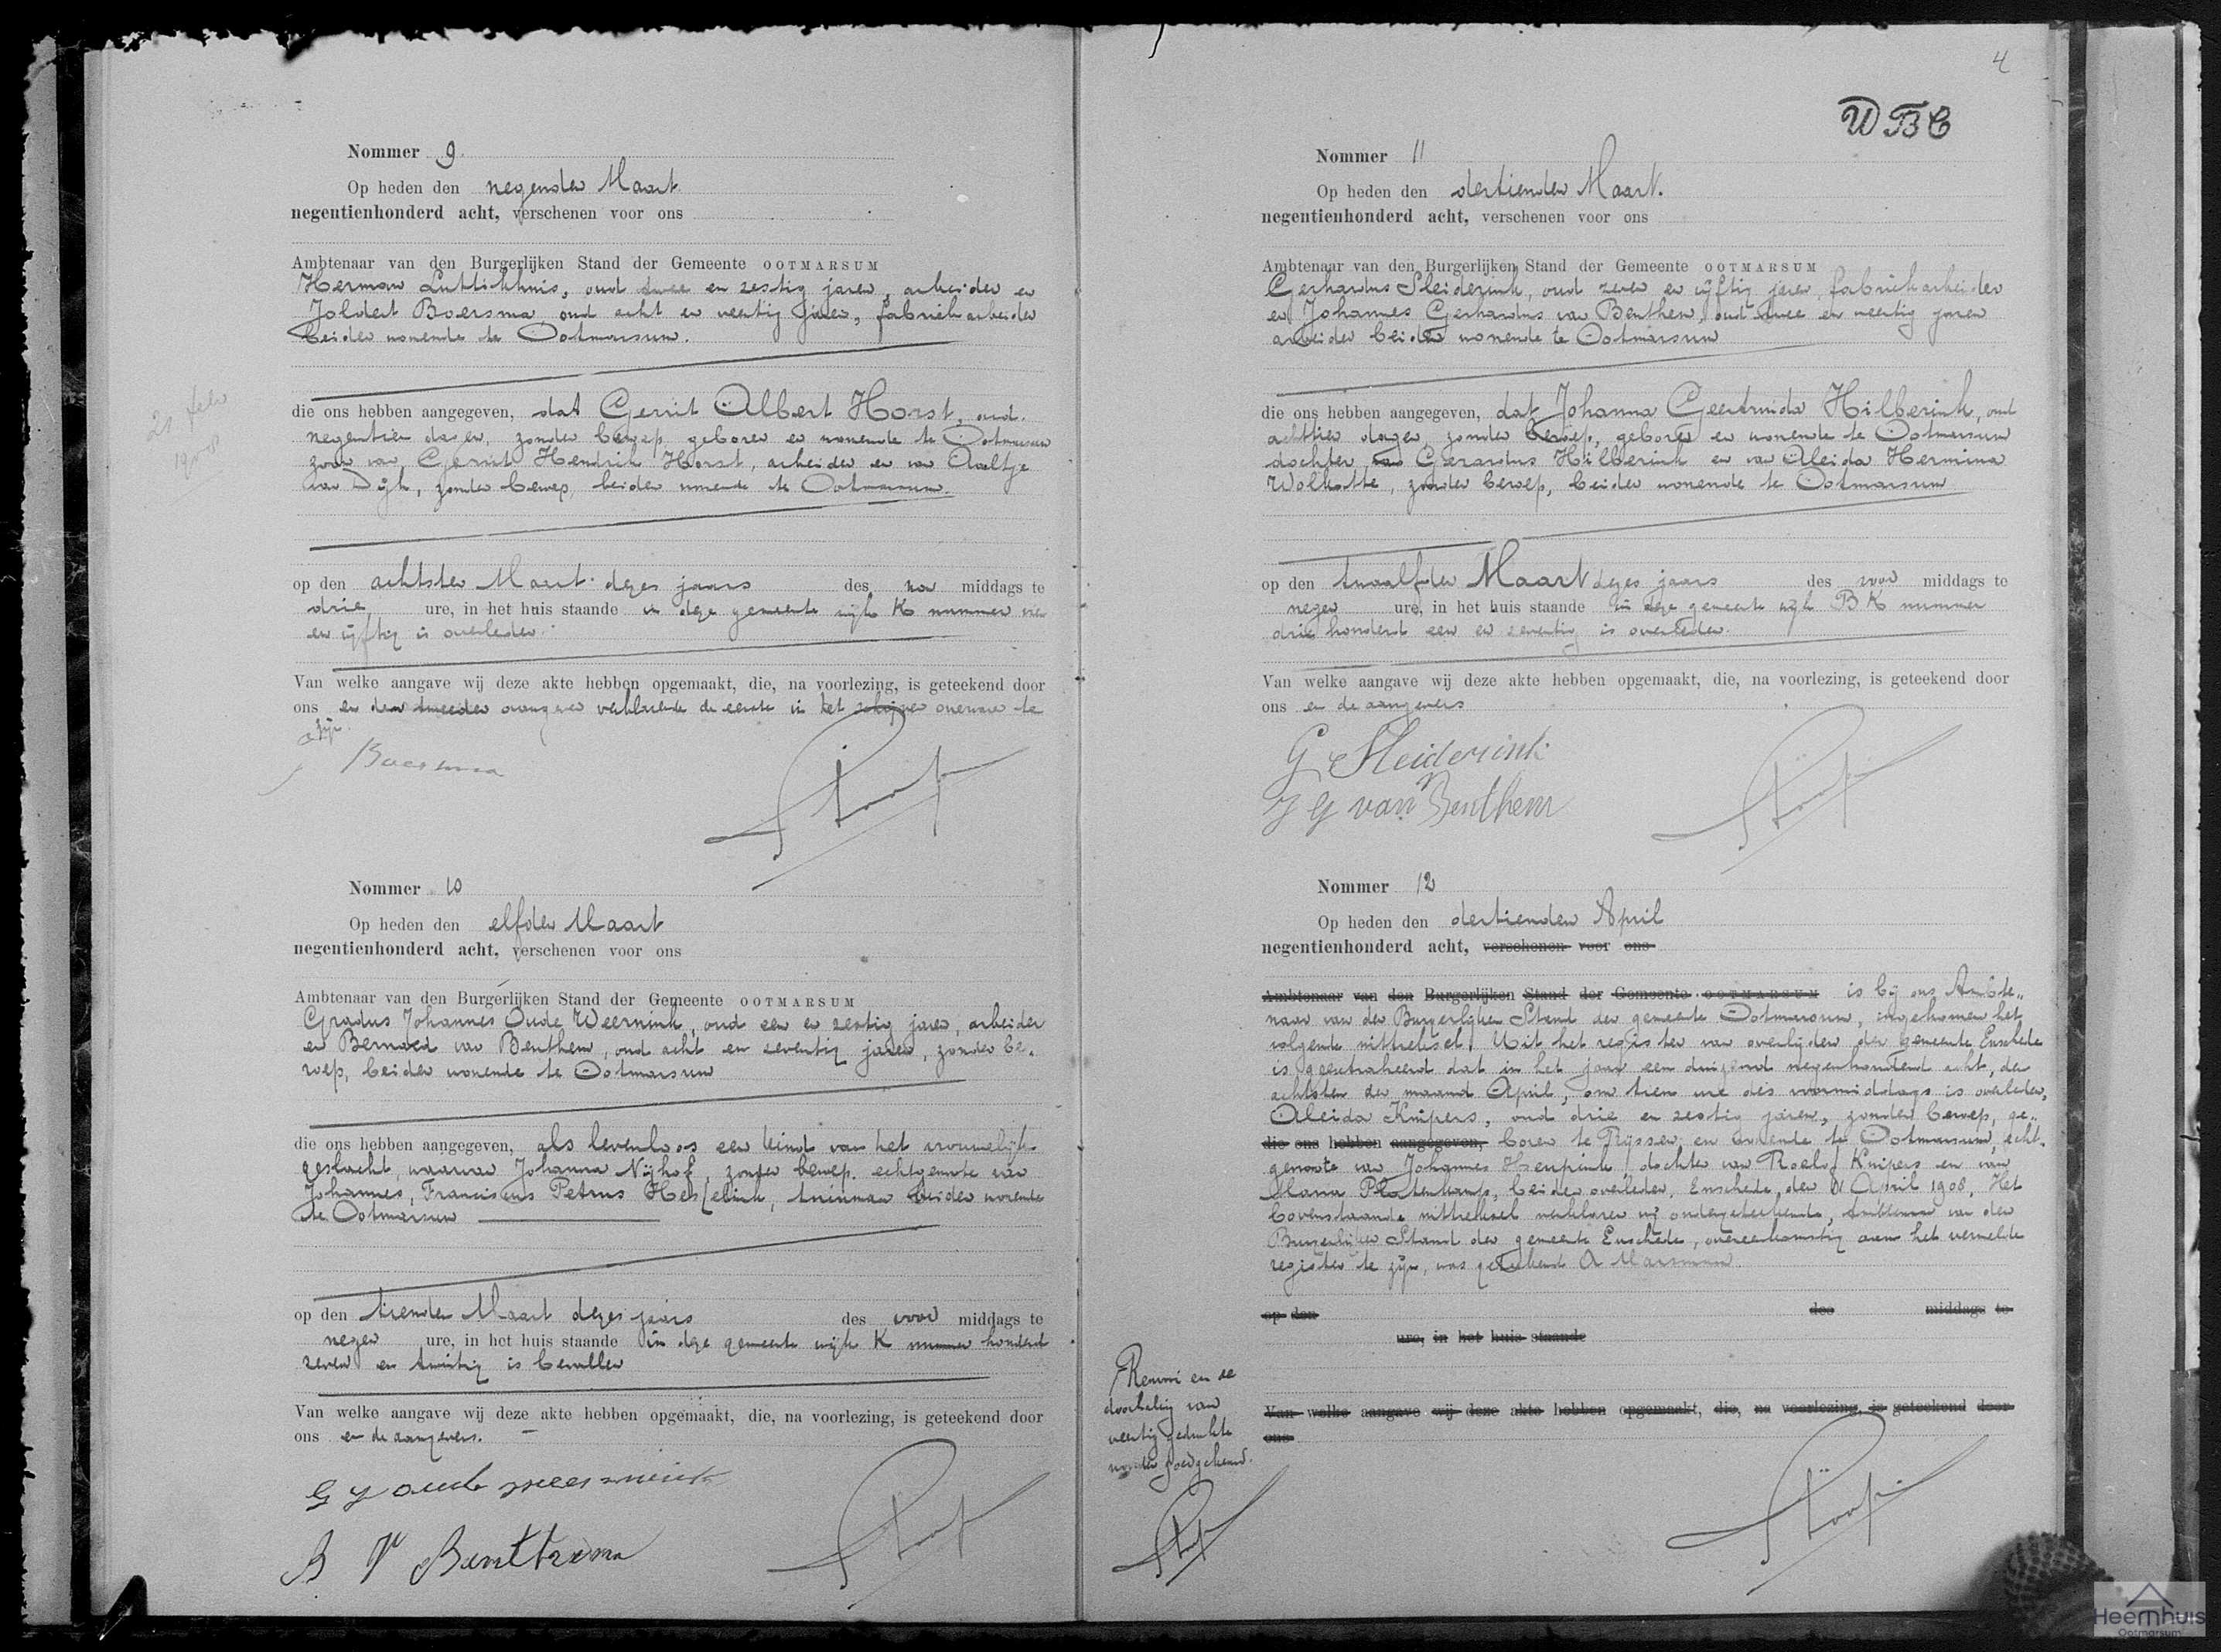 Nommer 9.
Op heden den negenden Maart
negentienhonderd acht, verschenen voor ons
Ambtenaar van den Burgerlijken Stand der Gemeente OOTMARSUM
Herman Luttikhuis, oud twee en zestig jaren, arbeider en
Joldert Boersma oud acht en veertig jaren, fabriekarbeider
beiden wonende te Ootmarsum.
21 febr
1908
die ons hebben aangegeven, dat Gerrit Albert Horst, oud
negentien dagen, zonder beroep, geboren en wonende te Ootmarsum
zoon van Gerrit Hendrik Horst, arbeider en van Aaltje
van Dijk, zonder beroep, beiden wonende te Ootmarsum.
op den achtsten Maart dezes jaars des na middags te
drie ure, in het huis staande in deze gemeente wijk K nummer vier
en vijftig is overleden.
Van welke aangave wij deze akte hebben opgemaakt, die, na voorlezing, is geteekend door
ons en den tweeden aangever verklarende de eerste in het schrijven onervaren te
zijn.
Boersma
Nommer 10
Op heden den elfden Maart
negentienhonderd acht, verschenen voor ons
Ambtenaar van den Burgerlijken Stand der Gemeente OOTMARSUM
Gradus Johannes Oude Weernink, oud een en zestig jaren, arbeider
en Bernard van Benthem, oud acht en zeventig jaren, zonder be-
roep, beiden wonende te Ootmarsum
die ons hebben aangegeven, als levenloos een kind van het vrouwelijk
geslacht, waarvan Johanna Nijhof, zonder beroep, echtgenoote van
Johannes, Franciscus Petrus Heszelink, tuinman beiden wonende
te Ootmarsum
op den tienden Maart dezes jaars des voor middags te
negen ure, in het huis staande in deze gemeente wijk K nummer honderd
zeven en twintig is bevallen
Van welke aangave wij deze akte hebben opgemaakt, die, na voorlezing, is geteekend door
ons en de aangevers.
G J oude weernink
B V Benthem
4
WBC
Nommer 11
Op heden den dertienden Maart.
negentienhonderd acht, verschenen voor ons
Ambtenaar van den Burgerlijken Stand der Gemeente OOTMARSUM
Gerhardus Sleiderink, oud zeven en vijftig jaren, fabriekarbeider
en Johannes Gerhardus van Benthem, oud twee en veertig jaren
arbeider beiden wonende te Ootmarsum
die ons hebben aangegeven, dat Johanna Geertruida Hilberink, oud
achttien dagen, zonder beroep, geboren en wonende te Ootmarsum
dochter van Gerardus Hilberink en van Aleida Hermina
Wolkotte, zonder beroep, beiden wonende te Ootmarsum
op den twaalfden Maart dezes jaars des voor middags te
negen ure, in het huis staande in deze gemeente wijk BK nummer
drie honderd een en zeventig is overleden.
Van welke aangave wij deze akte hebben opgemaakt, die, na voorlezing, is geteekend door
ons en de aangevers
G Sleiderink
J G van Benthem
Nommer 12
Op heden den dertienden April
negentienhonderd acht, verschenen voor ons
Ambtenaar van den Burgerlijken Stand der Gemeente OOTMARSUM is bij ons Ambte-
naar van den Burgerlijken Stand der gemeente Ootmarsum, ingekomen het
volgende uittreksel: Uit het register van overlijden der gemeente Enschede
is geextraheerd dat in het jaar een duizend negenhonderd acht, den
achtsten der maand April, om tien ure des voormiddags is overleden,
Aleida Kuipers, oud drie en zestig jaren, zonder beroep, ge-
die ons hebben aangegeven, boren te Rijssen en wonende te Ootmarsum, echt-
genoote van Johannes Heupink, dochter van Roelof Kuipers en van
Maria Platenkamp, beiden overleden, Enschede, den 11 April 1908, Het
bovenstaande uittreksel verklaren wij ondergeteekende, Ambtenaar van den
Burgerlijken Stand der gemeente Enschede, overeenkomstig aan het vermelde
register te zijn, was geteekend A Marsman.
op den des middags te
ure, in het huis staande
Van welke aangave wij deze akte hebben opgemaakt, die, na voorlezing, is geteekend door
ons
Renvooi en de
doorhaling van
veertig gedrukte
woorden goedgekeurd.
Heernhuis
Ootmarsum